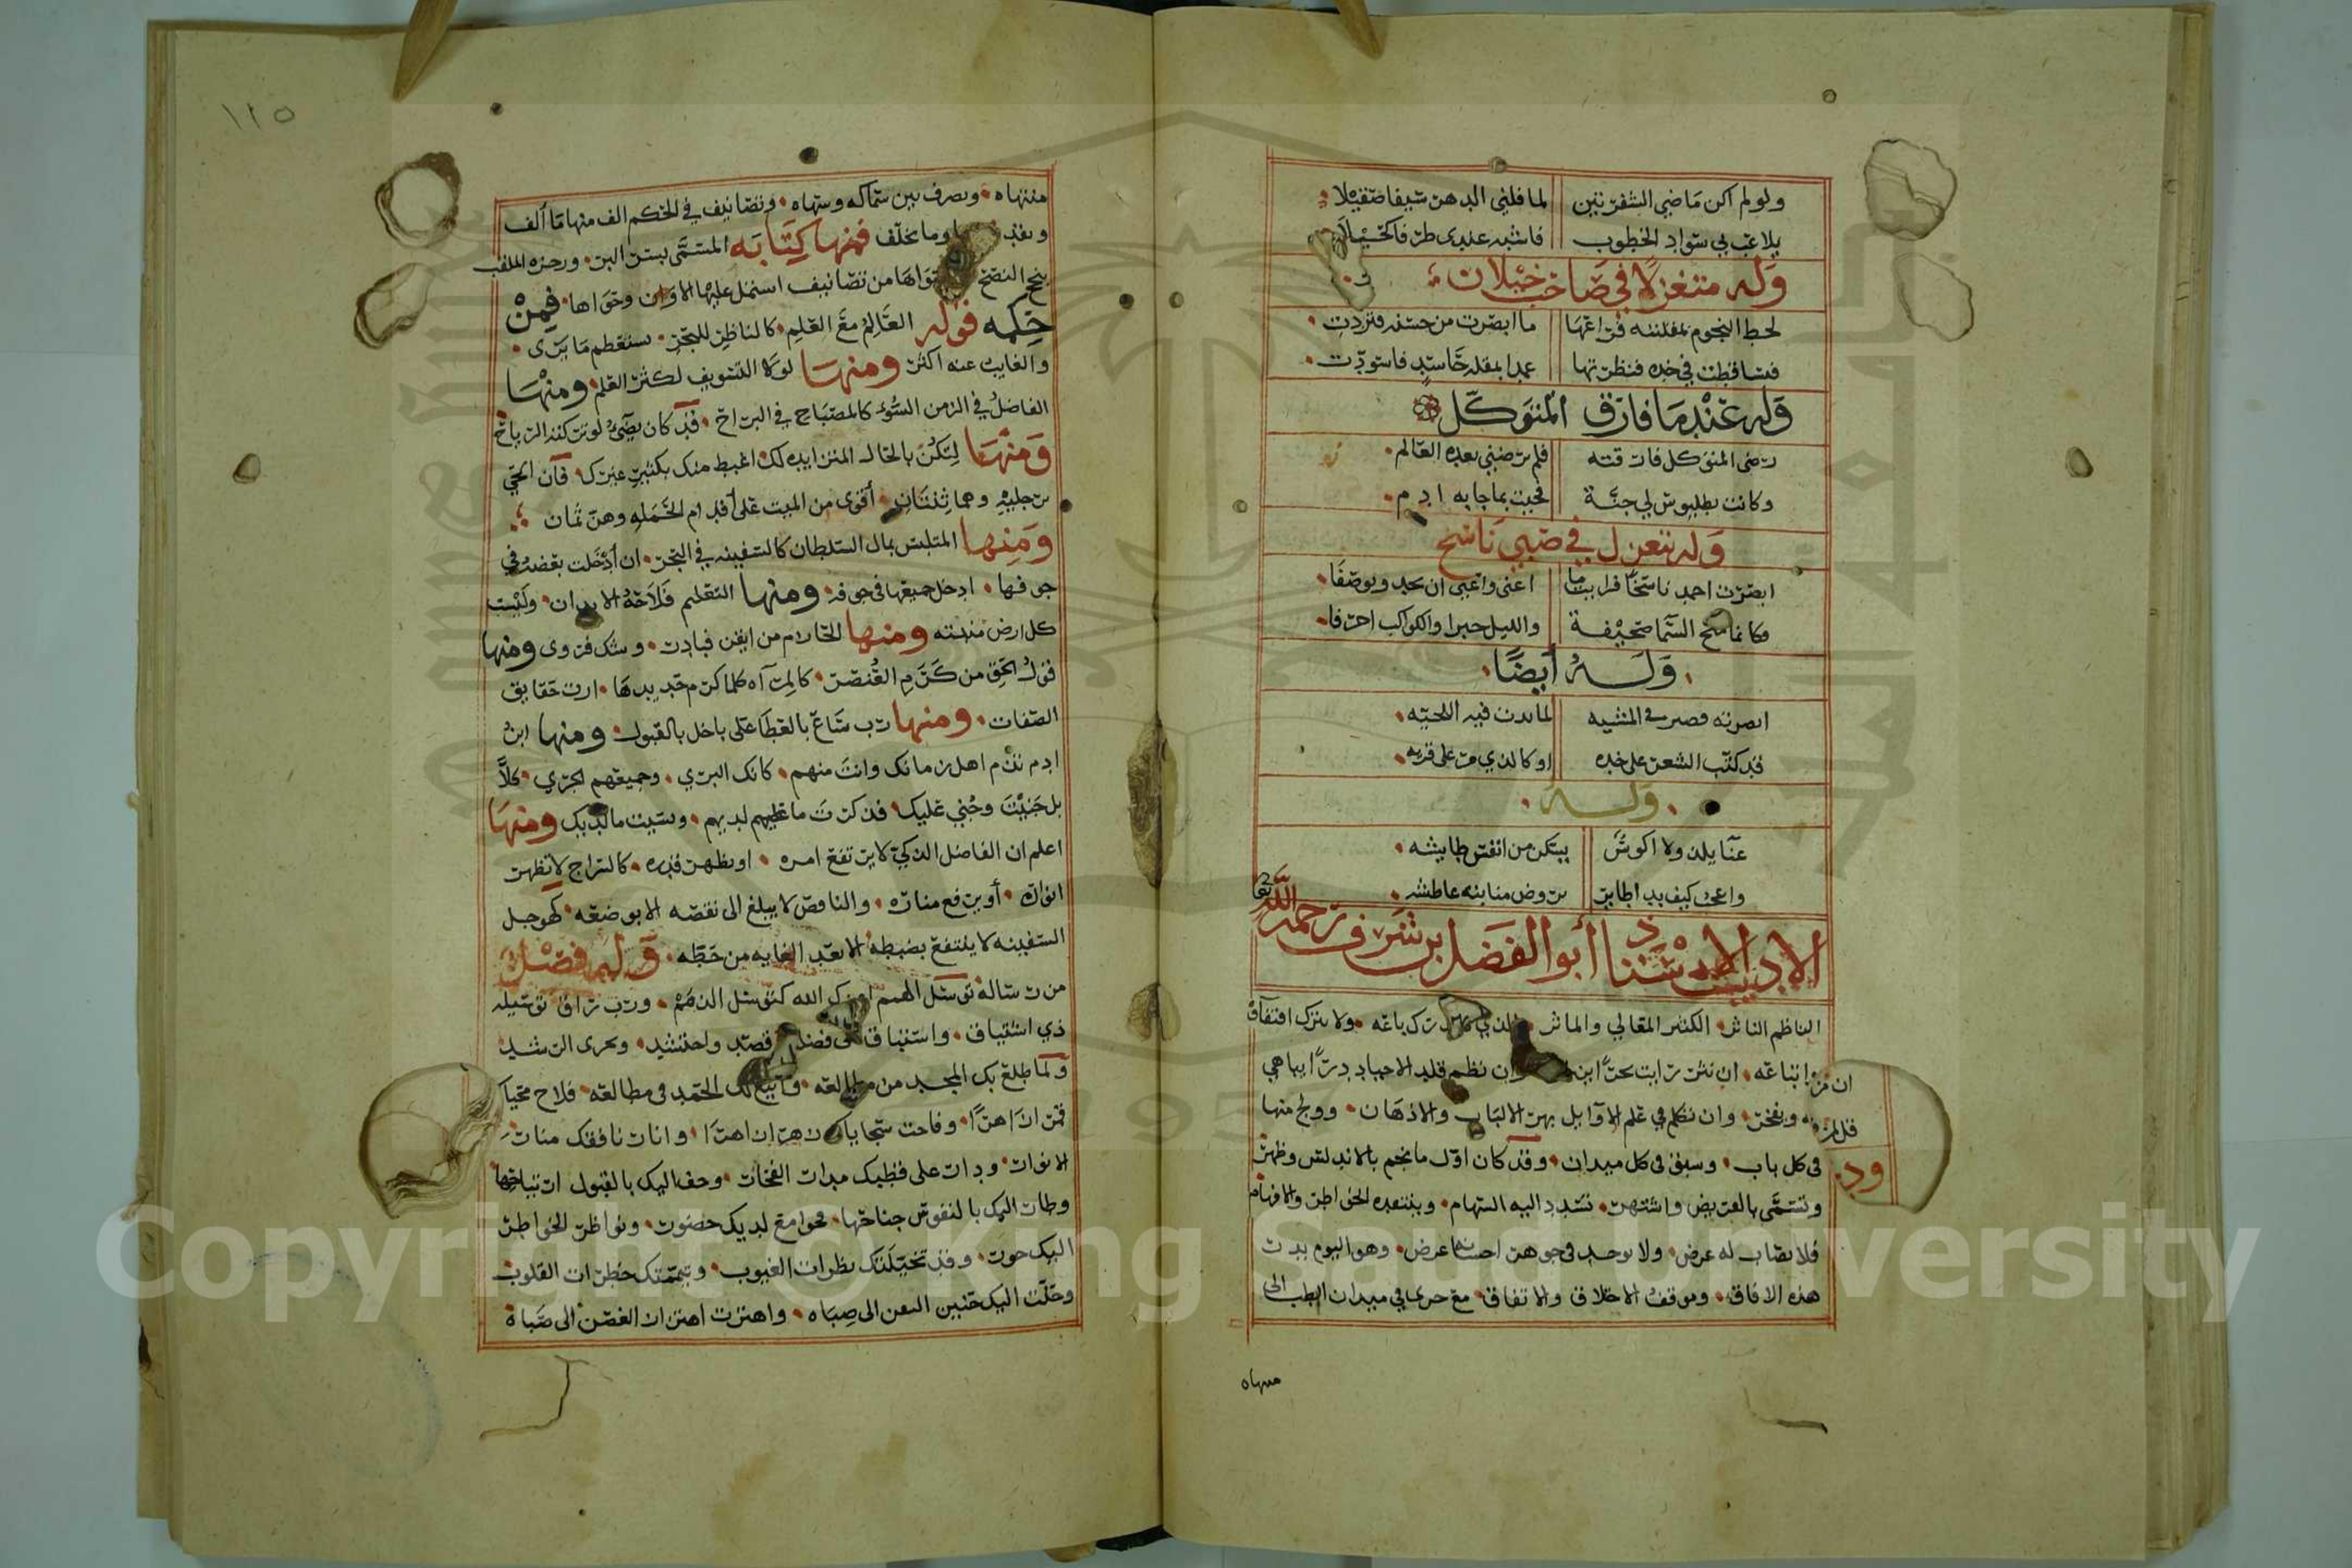 ولو لم اكن ماضي الشفرتين لما فلني الدهر سيفا صقيلا
يلاعب بي سواد الخطوب
وله متغزلا في صاحب خيلان
لحظ النجوم بمقلته فراعها ما ابصرت من حسنه فتردت
فتساقطت في خده فنظرتها عمدا بمقلة حاسد فاسودت
وله عندما فارق المتوكل
رضى المتوكل فارقته فلم يرضني بعده العالم
وكانت بطليوس لي جنة فجيت بما جابه ادم
وله يتغزل في صبي ناسخ
ابصرت احمد ناسخا فرايت ما اعنى واعيى ان يحد ويوصفا
فكانما نسخ السما صحيفة والليل حبرا والكواكب احرفا
وله أيضا
ابصرته قصر في المشيه لما بدت فيه اللحيه
قد كتب الشعر على خده او كالذي مر على قريه
وله
عنا يلذ ولا اكوس يسكر من انفس طايشه
واعجب كيف بدا طاير روض منابته عاطشه
الاديب الاستاذ أبو الفضل بن شرف رحمه الله تعا
الناظم الناثر الكثير المعالي والماثر الذي لا يدرك باعه ولا يترك اقتفاؤه
اتباعه ان نثر رايت بحرا وان نظم قلد الاجياد درا يباهي
به ويفخر وان تكلم في علم الاوايل بهر الالباب والاذهان وولج منها
في كل باب وسبق في كل ميدان وقد كان اول ما نجم بالاندلس وظهر
وتسمى بالقريض واشتهر تسدد اليه السهام وينتقده الخواطر والافهام
فلا يصاب له غرض ولا يوجد في جوهر احسانه عرض وهو اليوم بدر
هذه الافاق وموقف الاختلاف والاتفاق مع جرى في ميدان الطب الى
منتهاه
١٢٥
منتهاه وتصرف بين سماكه وسهاه وتصانيف في الحكم الف منها ما ألف
وما تخلف فمنها كتابه المسمى بسر البر ورجزه الملقب
بنجح النصح من تصانيف اشتمل عليها الاوان وحواها فمن
حكمه قوله العالم مع العلم كالناظر للبحر يستعظم ما يرى
والغايب عنه اكثر ومنها لولا التسويف لكثر العلم ومنها
الفاضل في الزمن السوء كالمصباح في البراح قد كان يضيء لو تركته الرياح
ومنها لتكن بالحال المتزايده لك اغبط منك بكثير غيرك فان الحي
برجليه وهما ثنتان أقوى من الميت على أقدام الحمله وهن ثمان
ومنها المتلبس بمال السلطان كالسفينه في البحر ان أدخلت بعضه في
جوفها ادخل جميعها في جوفه ومنها التعليم فلاحة الابدان وليست
كل ارض منبته ومنها الحازم من ايقن فبادر وشك فروى ومنها
قول الحق من كرم العنصر كالمرآه كلما كرم حديدها ارت حقايق
الصفات ومنها رب سامح بالعطا على باخل بالقبول ومنها ابن
ادم تذم اهل زمانك وانت منهم كانك البري وجميعهم الجري كلا
بل جنيت وجني عليك فذكرت ما عليهم لديهم ونسيت ما لديك ومنها
اعلم ان الفاضل الذكي لا يرتفع امره او يظهر قدره كالسراج لا تظهر
انواره أو يرفع مناره والناقص لا يبلغ الى نقصه الا بوضعه كهوجل
السفينه لا ينتفع بضبطه الا بعد الغايه من حطه وله فصل
من رسالة توسل الهمم اعزك الله كتوسل الذمم ورب براق توسيله
ذي اشتياق واستباق فضل قصد واحتشد وتحرى الرشد
ولما طلع بك المجد من مطالعه في مطالعه فلاح محياك
قمرا زاهرا وفاحت سجاياك زهرا ازاهرا وانار نافقك منار
الانوار ودار على قطبك مدار الفخار وحف اليك بالقبول ارتياحها
وطار اليك بالنفوس جناحها فجوامع لديك حضور ونواظر الخواطر
اليك حور وقد تخيلتك نظرات الغيوب ويممتك خطرات القلوب
وحنت اليك حنين المسن الى صباه واهتزت اهتزاز الغصن الى صباه
Copyright © King Saud University
1957